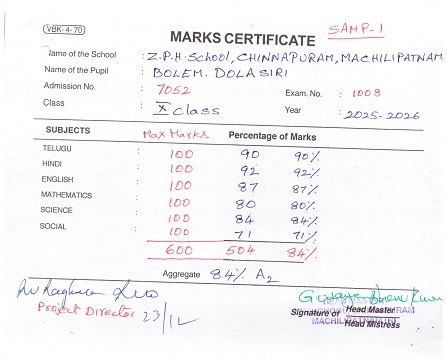 VBK-4-70
SAMP-1
MARKS CERTIFICATE
Name of the School : Z.P.H. School, CHINNAPURAM, MACHILIPATNAM
Name of the Pupil : BOLEM. DOLA SIRI
Admission No. : 7052 Exam. No. : 1008
Class : X class Year : 2025-2026
SUBJECTS Max Marks Percentage of Marks
TELUGU : 100 90 90%
HINDI : 100 92 92%
ENGLISH : 100 87 87%
MATHEMATICS : 100 80 80%
SCIENCE : 100 84 84%
SOCIAL : 100 71 71%
600 504 84%
Aggregate 84% A2
Project Director 23/12
HEAD MASTER
Signature of Head Master
MACHILIPATNAM
Head Mistress